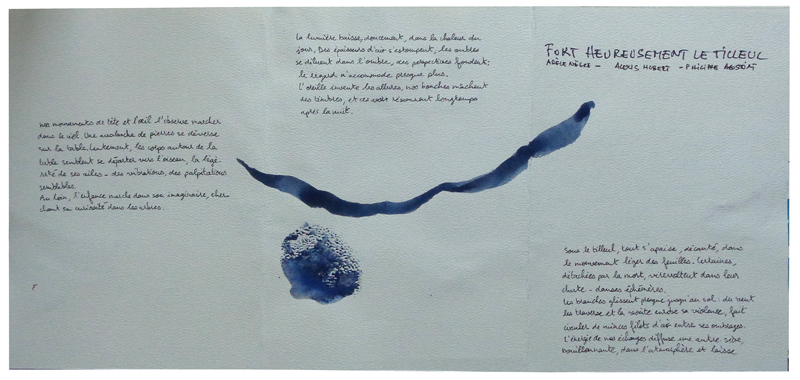 FORT HEUREUSEMENT LE TILLEUL
ADÈLE NÈGRE - ALEXIS HUBERT - PHILIPPE AGOSTINI
La lumière baisse, doucement, dans la chaleur du
jour. Des épaisseurs d'air s'estompent, les ombres
se diluent dans l'ombre, des perspectives fondent;
le regard n'accommode presque plus.
L'oreille invente les allures, nos bouches mâchent
des timbres, et ces voix résonneront longtemps
après la nuit.
nos mouvements de tête et l'œil l'observe marcher
dans le ciel. Une avalanche de pierres se déverse
sur la table. Lentement, les corps autour de la
table semblent se départer vers l'oiseau, la légè-
reté de ses ailes - des vibrations, des palpitations
semblables.
Au loin, l'enfance marche dans son imaginaire, cher
chant sa curiosité dans les arbres.
Sous le tilleul, tout s'apaise, décanté, dans
le mouvement léger des feuilles. Certaines,
détachées par la mort, virevoltent dans leur
chute - danses éphémères.
Les branches glissent presque jusqu'au sol. du vent
les traverse et la voûte enrobe sa violence, fait
circuler de minces filets d'air entre ses ombrages.
L'énergie de nos échanges diffuse une autre sève,
bouillonnante, dans l'atmosphère et laisse